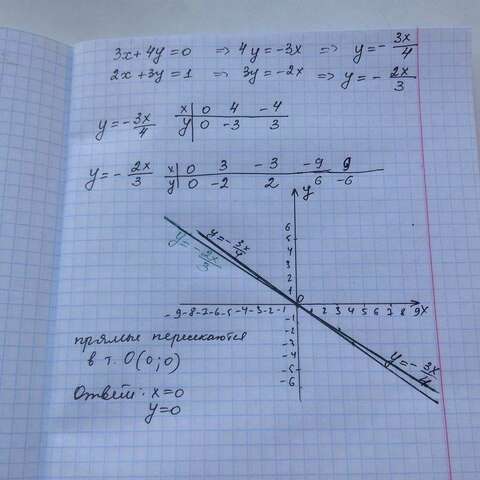 3x+4y=0 ⇒ 4y=-3x ⇒ y=-3x/4
2x+3y=1 ⇒ 3y=-2x ⇒ y=-2x/3
y=-3x/4 x 0 4 -4
y 0 -3 3
y=-2x/3 x 0 3 -3 -9 9
y 0 -2 2 6 -6
y
6
5
4
3
2
1
y=-3x/4
y=-2x/3
0
-9-8-7-6-5-4-3-2-1 1 2 3 4 5 6 7 8 9 x
-1
-2
-3
-4
-5
-6
y=-3x/4
прямые пересекаются
в т. O(0;0)
Ответ: x=0
y=0